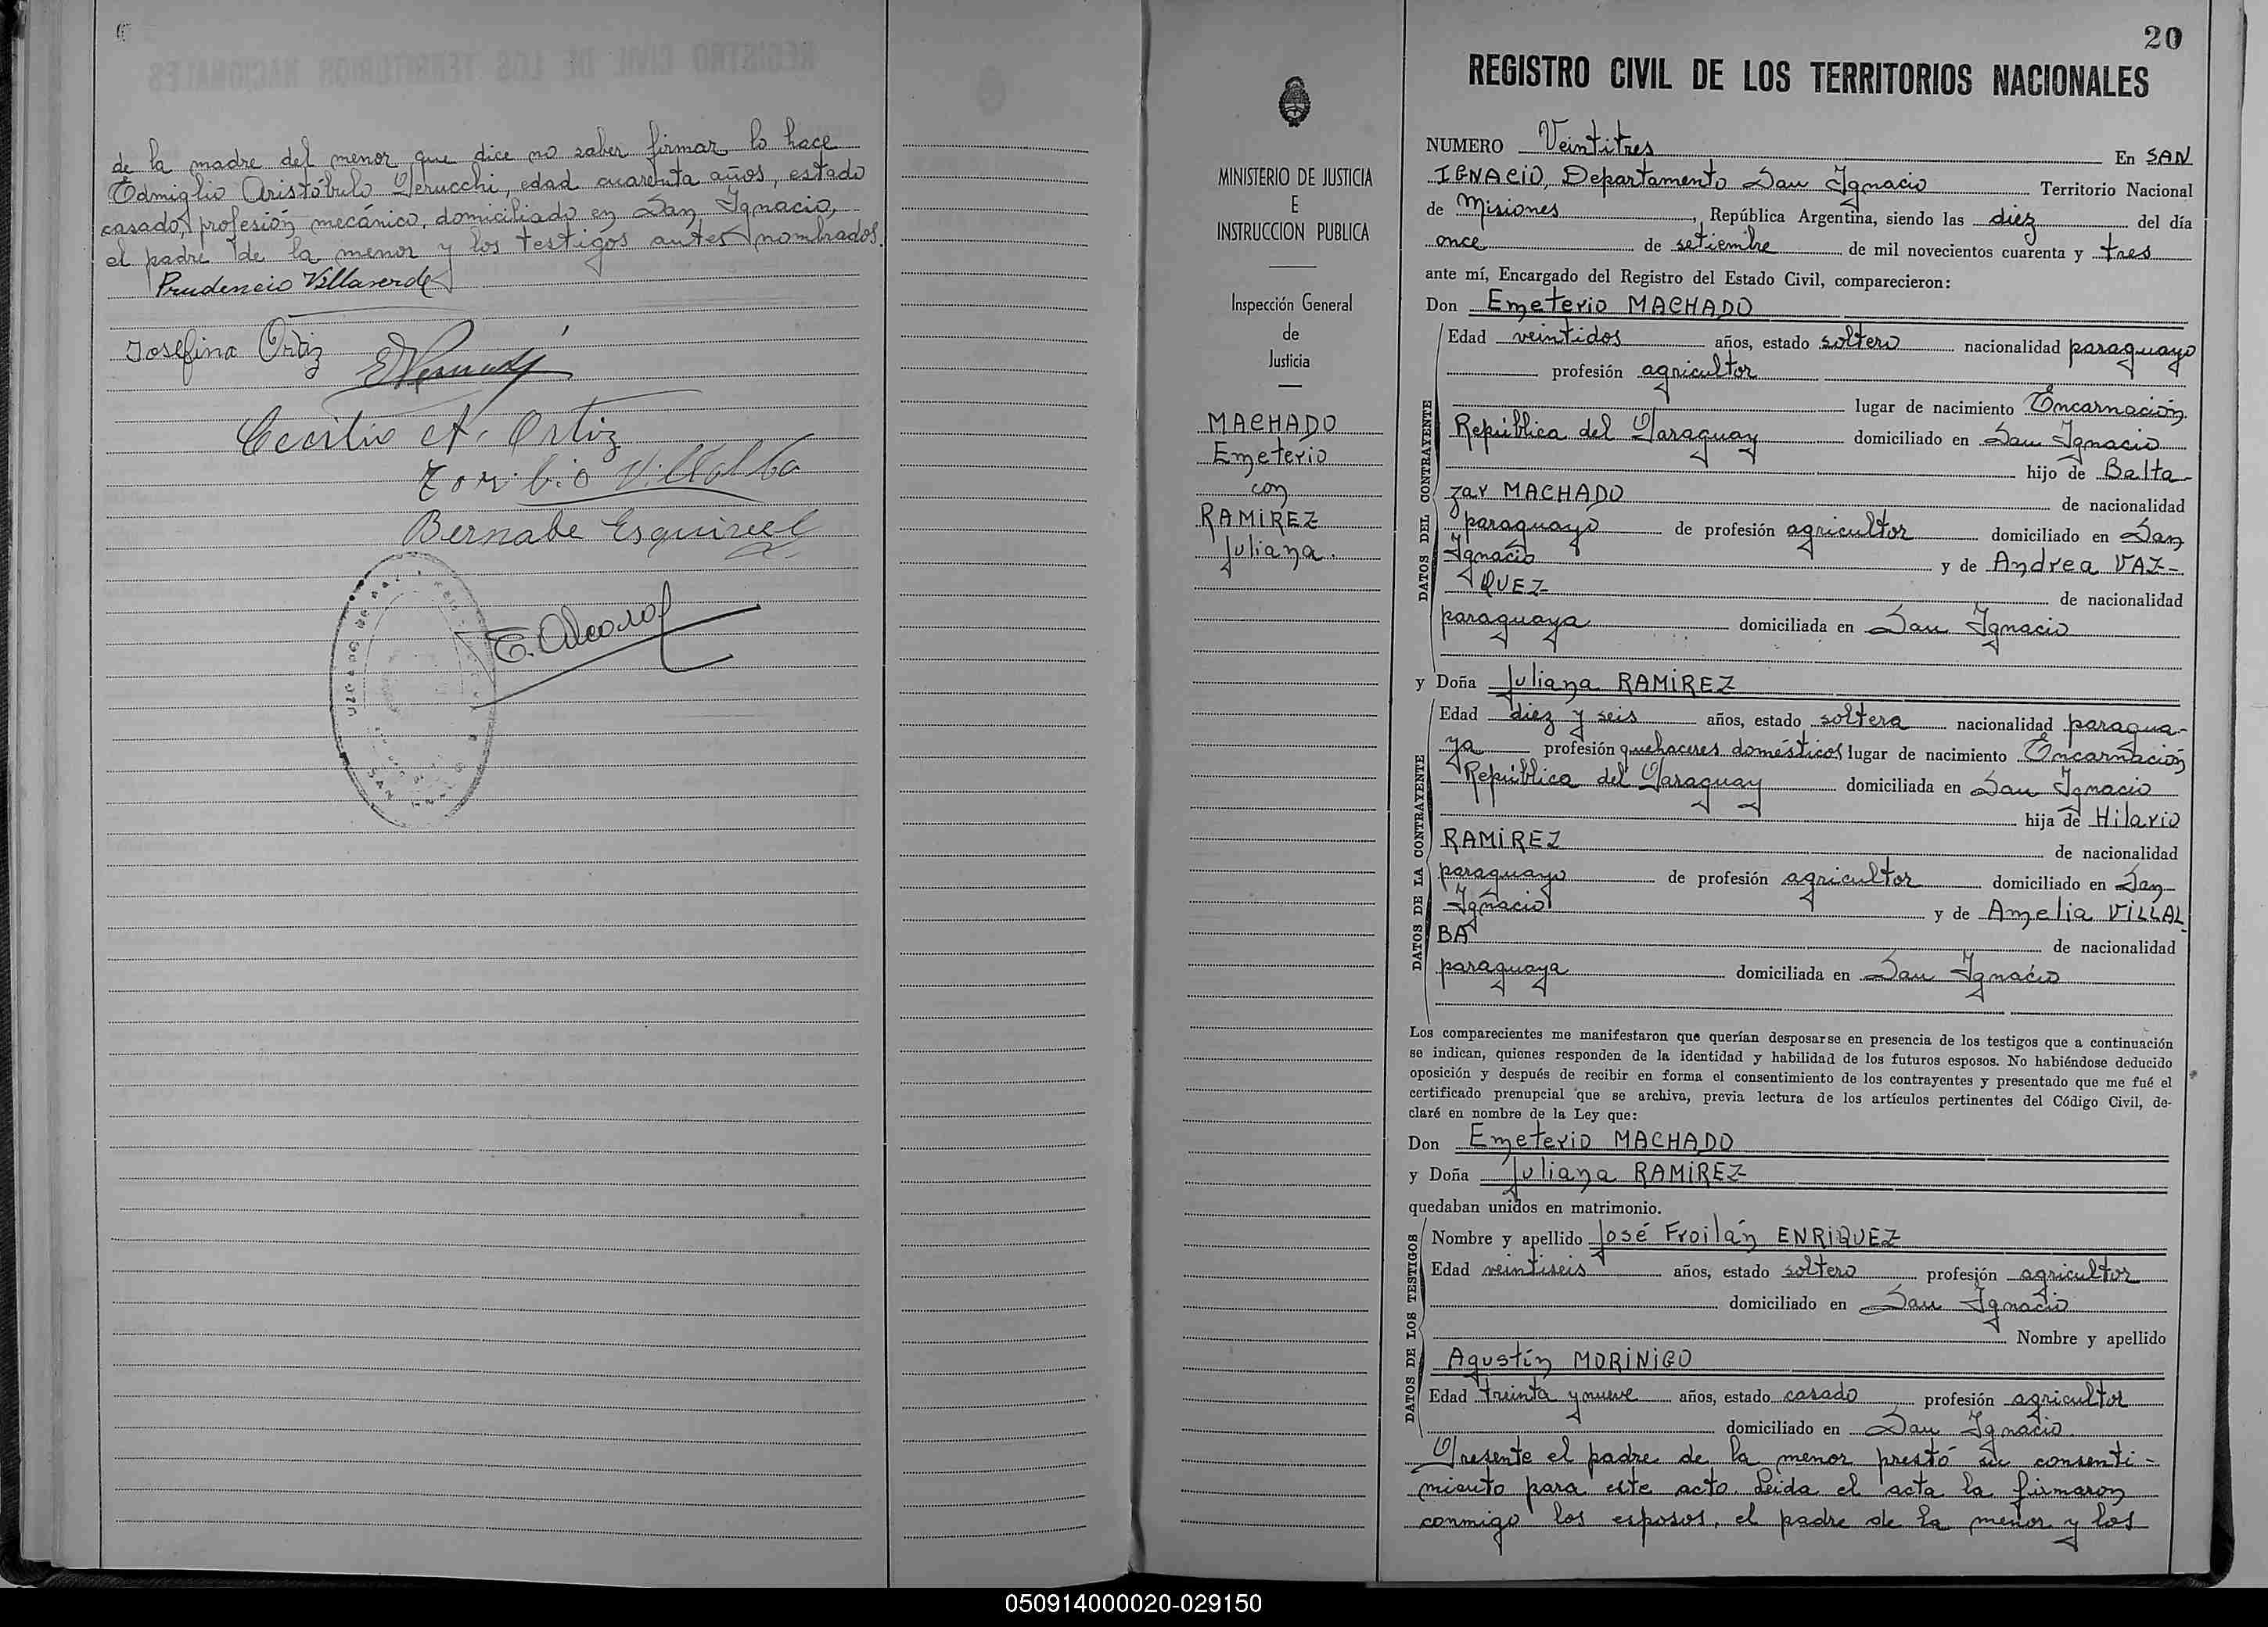 de la madre del menor que dice no saber firmar lo hace
Edmiglio Aristóbulo Perucchi, edad cuarenta años, estado
casado, profesión mecánico, domiciliado en San Ignacio,
el padre de la menor y los testigos antes nombrados.
Prudencio Villaverde
Josefina Ortiz
Cecilio A. Ortiz
Toribio Villalba
Bernabe Esquivel
SAN
20
REGISTRO CIVIL DE LOS TERRITORIOS NACIONALES
MINISTERIO DE JUSTICIA
E
INSTRUCCION PUBLICA
Inspección General
de
Justicia
MACHADO
Emeterio
con
RAMIREZ
Juliana.
NUMERO Veintitres En SAN
IGNACIO, Departamento San Ignacio Territorio Nacional
de Misiones, República Argentina, siendo las diez del día
once de setiembre de mil novecientos cuarenta y tres
ante mí, Encargado del Registro del Estado Civil, comparecieron:
Don Emeterio MACHADO
DATOS DEL CONTRAYENTE
Edad veintidos años, estado soltero nacionalidad paraguayo
profesión agricultor
lugar de nacimiento Encarnación
República del Paraguay domiciliado en San Ignacio
hijo de Balta-
zar MACHADO de nacionalidad
paraguayo de profesión agricultor domiciliado en San
Ignacio y de Andrea VAZ-
QUEZ de nacionalidad
paraguaya domiciliada en San Ignacio
y Doña Juliana RAMIREZ
DATOS DE LA CONTRAYENTE
Edad diez y seis años, estado soltera nacionalidad paragua-
ya profesión quehaceres domésticos lugar de nacimiento Encarnación
República del Paraguay domiciliada en San Ignacio
hija de Hilario
RAMIREZ de nacionalidad
paraguayo de profesión agricultor domiciliado en San
Ignacio y de Amelia VILLAL-
BA de nacionalidad
paraguaya domiciliada en San Ignacio
Los comparecientes me manifestaron que querían desposarse en presencia de los testigos que a continuación
se indican, quienes responden de la identidad y habilidad de los futuros esposos. No habiéndose deducido
oposición y después de recibir en forma el consentimiento de los contrayentes y presentado que me fué el
certificado prenupcial que se archiva, previa lectura de los artículos pertinentes del Código Civil, de-
claré en nombre de la Ley que:
Don Emeterio MACHADO
y Doña Juliana RAMIREZ
quedaban unidos en matrimonio.
DATOS DE LOS TESTIGOS
Nombre y apellido José Froilán ENRIQUEZ
Edad veintiseis años, estado soltero profesión agricultor
domiciliado en San Ignacio
Nombre y apellido
Agustín MORINIGO
Edad treinta y nueve años, estado casado profesión agricultor
domiciliado en San Ignacio.
Presente el padre de la menor prestó su consenti-
miento para este acto. Leida el acta la firmaron
conmigo los esposos, el padre de la menor y los
050914000020-029150